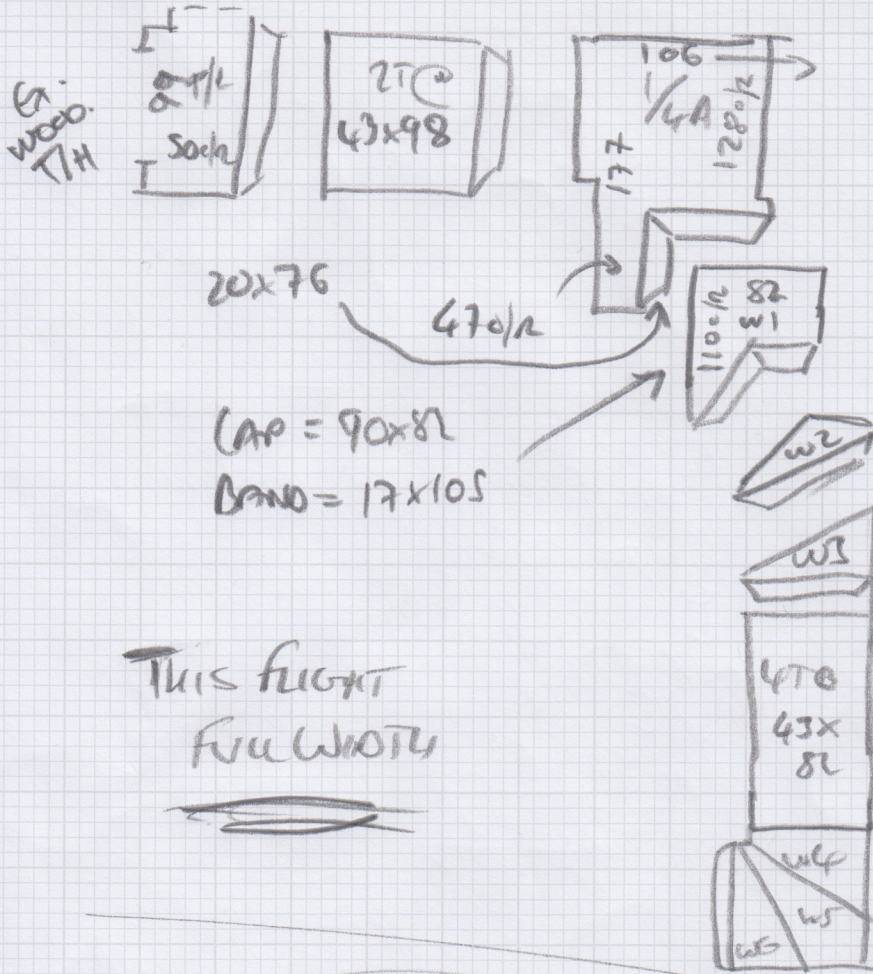 G.
WOOD.
T/H
T/R
50o/r
2T@
43x98
106
1/4A
128o/r
177
20x76
47o/r
110o/r
82
W1
CAP = 90x82
BAND = 17x105
W2
W3
THIS FLIGHT
FULL WIDTH
4T@
43x
82
W4
W5
W6